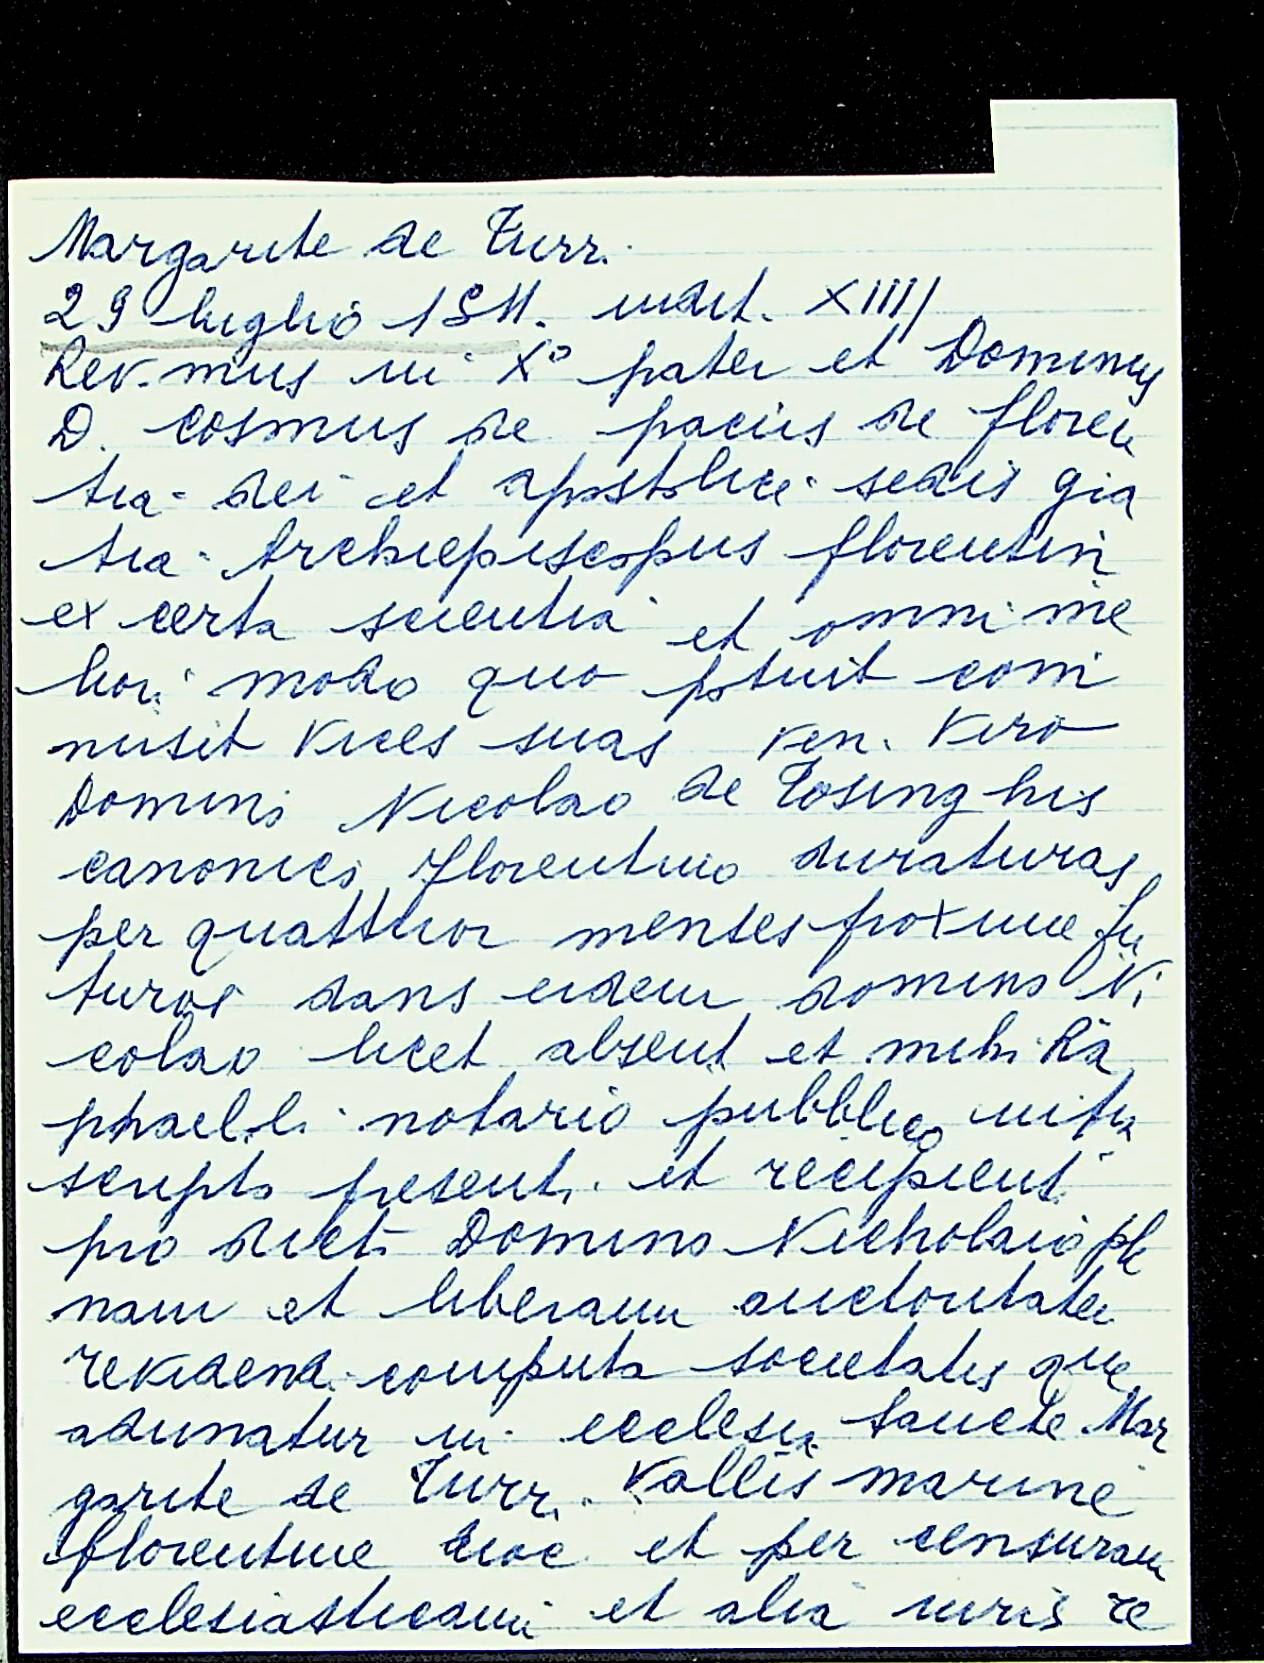 Margarite de Turr.
29 luglio 1511. indict. XIIII
Rev.mus in X° pater et Dominus
D. Cosmus de paciis de floren
tia dei et apostolice sedis gra
tia Archiepiscopus florentin
ex certa scientia et omni me
liori modo quo potuit com
misit vices suas ven. viro
Domino Nicolao de Tosinghis
canonico florentino duraturas
per quattuor menses proxime fu
turos dans eidem domino Ni
colao licet absent et mihi Ra
phaelli notario pubblico infra
scripto present. et recipient
pro dicto Domino Nicholaio ple
nam et liberam auctoritatem
revidend. computa societatis que
adunatur in ecclesia Sancte Mar
garite de Turr. Vallis marine
florentine dioc et per censuram
ecclesiasticam et alia iuris re